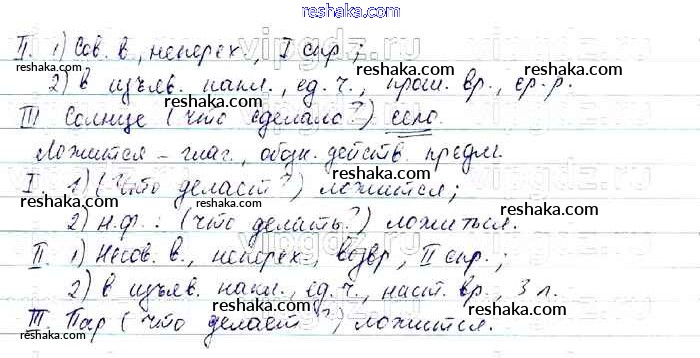 II. 1) Сов. в., неперех., I спр.;
2) в изъяв. накл., ед. ч., прош. вр., ср. р.
III Солнце (что сделало?) село.
Ложится – глаг., обозн. действ. предм.
I. 1) (Что делает?) ложится;
2) н.ф.: (что делать?) ложиться.
II. 1) Несов. в., неперех., возвр., II спр.;
2) в изъяв. накл., ед. ч., наст. вр., 3 л.
III. Пар (что делает?) ложится.
reshaka.com
vipgdz.ru